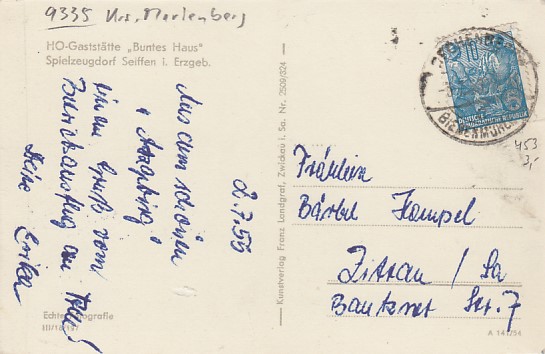 9335 Krs. Marienberg
HO-Gaststätte „Buntes Haus"
Spielzeugdorf Seiffen i. Erzgeb.
2.7.55
Aus dem schönen
Erzgebirge
einen Gruß vom
Betriebsausflug an
Deine Erika
Echte Fotografie
III/18/197
Kunstverlag Franz Landgraf, Zwickau i. Sa. Nr. 2509/824
DEUTSCHE
DEMOKRATISCHE REPUBLIK
453
3,-
Fräulein
Bärbel Hampel
Zittau / Sa
Bautzner Str. 7
A 141/54